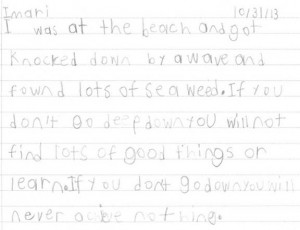 Imari 10/31/13
I was at the beach and got
knocked down by a wave and
fownd lots of sea weed. If you
don't go deep down you will not
find lots of good things or
learn. If you dont go down you will
never nothing.